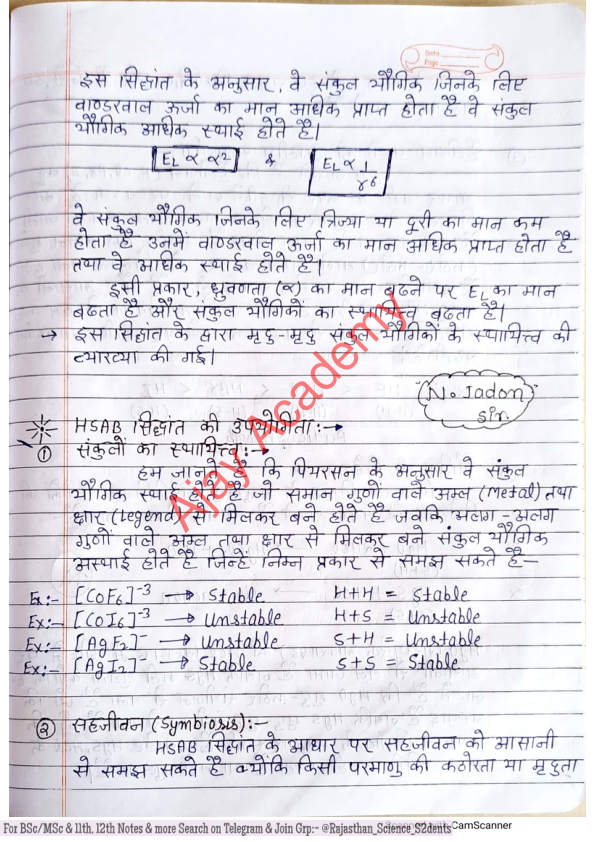 Date
Page
इस सिद्धांत के अनुसार, वे संकुल यौगिक जिनके लिए
वाण्डरवाल ऊर्जा का मान अधिक प्राप्त होता है वे संकुल
यौगिक अधिक स्थाई होते है।
EL ∝ α² & EL ∝ 1/r6
वे संकुल यौगिक जिनके लिए त्रिज्या या दूरी का मान कम
होता है उनमें वाण्डरवाल ऊर्जा का मान अधिक प्राप्त होता है
तथा वे अधिक स्थाई होते है।
इसी प्रकार, ध्रुवणता (α) का मान बढने पर EL का मान
बढता है और संकुल यौगिकों का स्थायित्त्व बढता है।
→ इस सिद्धांत के द्वारा मृदु-मृदु संकुल यौगिकों के स्थायित्त्व की
व्याख्या की गई।
N. Jadon
sir
HSAB सिद्धांत की उपयोगिता:-→
① संकुलों का स्थायित्त्व:-→
हम जानते है कि पियरसन के अनुसार वे संकुल
यौगिक स्थाई होते है जो समान गुणों वाले अम्ल (Metal) तथा
क्षार (Legend) से मिलकर बने होते है जबकि अलग-अलग
गुणों वाले अम्ल तथा क्षार से मिलकर बने संकुल यौगिक
अस्थाई होते है जिन्हें निम्न प्रकार से समझ सकते है-
Ex:- [CoF6]-3 → Stable H+H = Stable
Ex:- [CoI6]-3 → Unstable H+S = Unstable
Ex:- [AgF2]- → Unstable S+H = Unstable
Ex:- [AgI2]- → Stable S+S = Stable
② सहजीवन (Symbiosis):-
HSAB सिद्धांत के आधार पर सहजीवन को आसानी
से समझ सकते है क्योंकि किसी परमाणु की कठोरता या मृदुता
Ajay Academy
For BSc/MSc & 11th, 12th Notes & more Search on Telegram & Join Grp:- @Rajasthan_Science_S2dents
CamScanner